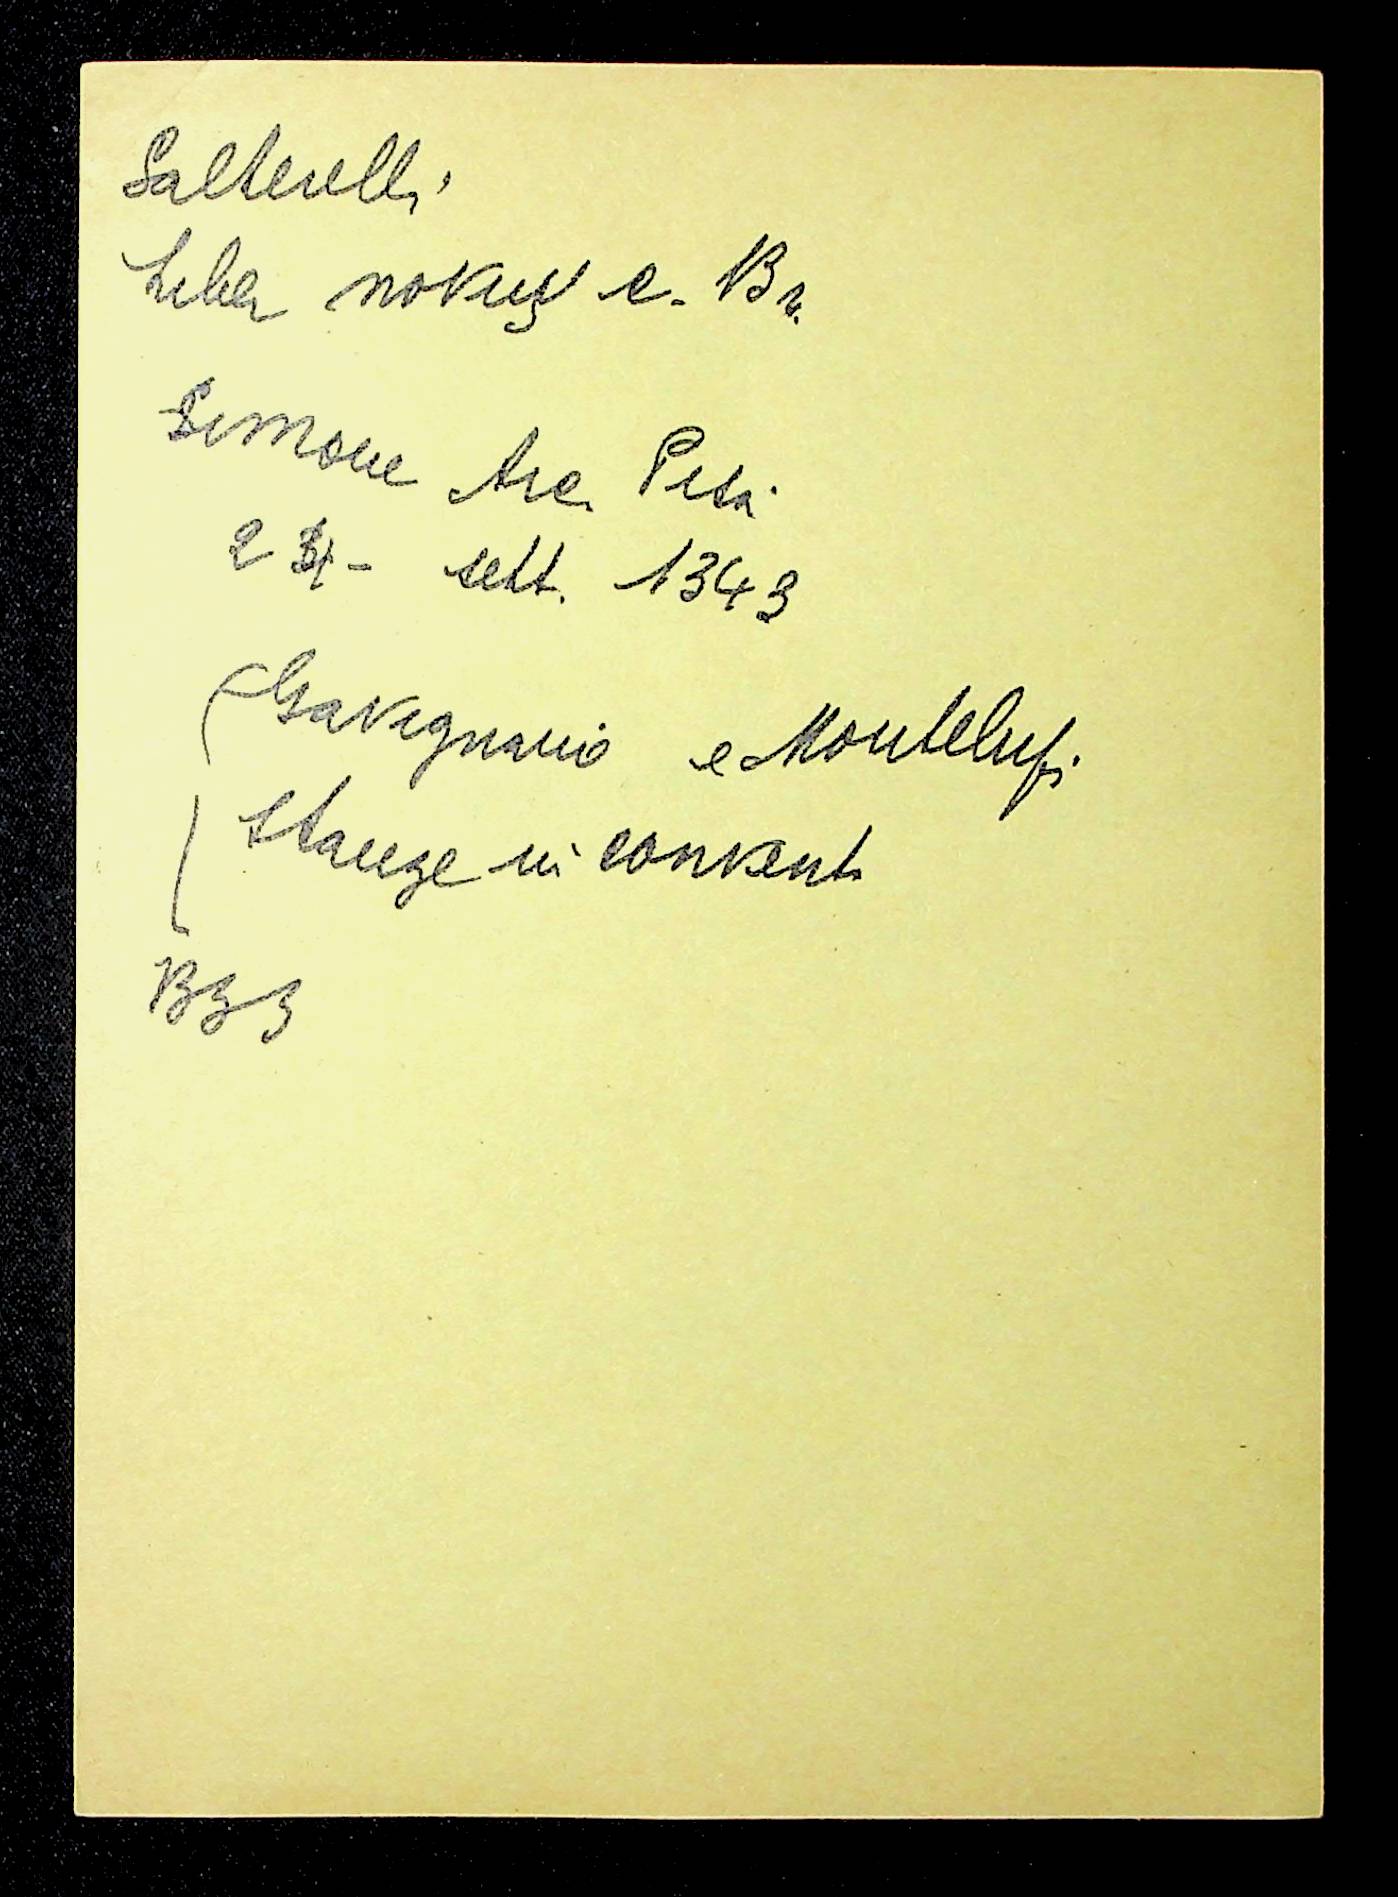 Salterelli
Liber novus c. B r.
Simone Arc. Pisa
2 31- sett. 1343
Gavignano e Montelufi
stanze in convento
B33